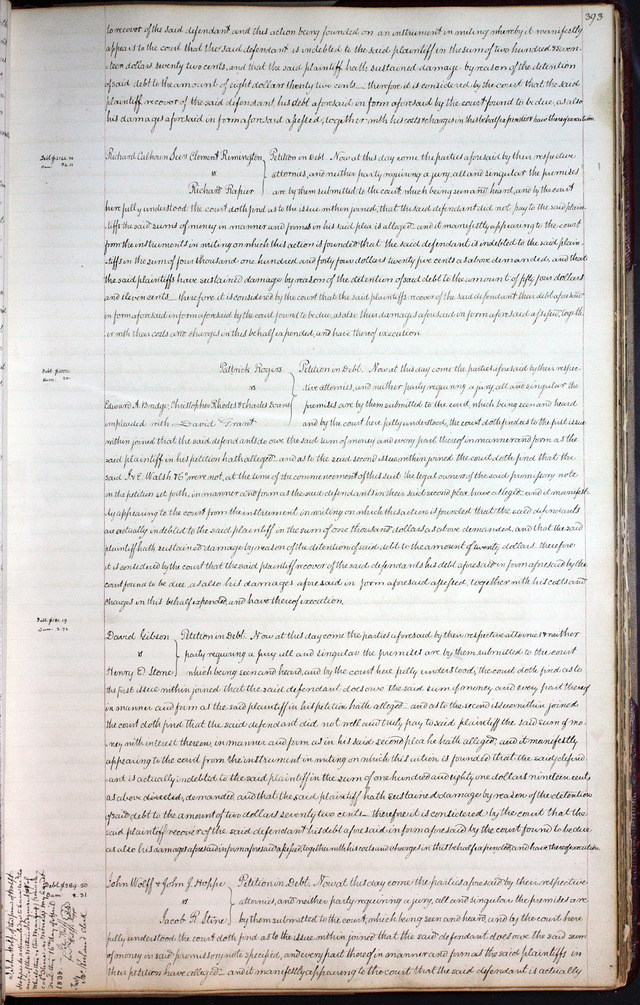 393
to recover of the said defendant, and this action being founded on an instrument in writing whereby it manifestly
appears to the court that the said defendant is indebted to the said plaintiff in the sum of two hundred & seven-
teen dollars twenty two cents, and that the said plaintiff hath sustained damage by reason of the detention
of said debt to the amount of eight dollars twenty two cents— therefore it is considered by the court that the said
plaintiff recover of the said defendant his debt aforesaid in form aforesaid by the court found to be due, as also
his damages aforesaid in form aforesaid assessed, together with his costs & charges in this behalf expended & have thereof execution
Richard Calhoun Clement Remington Petition in Debt. Now at this day come the parties aforesaid by their respective
vs attornies, and neither party requiring a jury, all and singular the premises
Richard Rapier are by them submitted to the court which being seen and heard, and by the court
here fully understood the court doth find as to the issue within joined, that the said defendant did not pay to the said plain-
tiffs the said sums of money in manner and form as in his said plea is alleged. and it manifestly appearing to the court
from the instruments in writing on which this action is founded that the said defendant is indebted to the said plain-
tiffs in the sum of four thousand one hundred and forty four dollars twenty five cents as above demanded, and that
the said plaintiffs have sustained damage by reason of the detention of said debt to the amount of fifty four dollars
and eleven cents— therefore it is considered by the court that the said plaintiffs recover of the said defendant their debt aforesaid
in form aforesaid in form aforesaid by the court found to be due, as also their damages aforesaid in form aforesaid assessed, togeth
er with their costs and charges in this behalf expended, and have thereof execution.
Patrick Rogers Petition in Debt. Now at this day come the parties aforesaid by their respec-
vs tive attornies, and neither party requiring a jury, all and singular the
Edward A. Bridge, Christopher Rhodes & Charles premises are by them submitted to the court, which being seen and heard
impleaded with David Grant and by the court here fully understood, the court doth find as to the first issue
within joined that the said defendants do owe the said sum of money and every part thereof in manner and form as the
said plaintiff in his petition hath alleged. and as to the second issue within joined the court doth find that the
said Jn E. Walsh & Co. were not, at the time of the commencement of this suit the legal owner of the said promissory note
in the petition set forth, in manner and form as the said defendants in their said second plea have alleged. and it manifest-
ly appearing to the court from the instrument in writing on which this action is founded that the said defendants
are actually indebted to the said plaintiff in the sum of one thousand dollars as above demanded, and that the said
plaintiff hath sustained damage by reason of the detention of said debt to the amount of twenty dollars. therefore
it is considered by the court that the said plaintiff recover of the said defendants his debt aforesaid in form aforesaid by the
court found to be due, as also his damages aforesaid in form aforesaid assessed, together with his costs and
charges in this behalf expended, and have thereof execution.
David Gibson Petition in Debt. Now at this day come the parties aforesaid by their respective attornies & neither
vs party requiring a jury all and singular the premises are by them submitted to the court
Henry D Stone which being seen and heard, and by the court here fully understood, the court doth find as to
the first issue within joined that the said defendant does owe the said sum of money and every part thereof
in manner and form as the said plaintiff in his petition hath alleged. and as to the second issue within joined
the court doth find that the said defendant did not well and truly pay to said plaintiff the said sum of mo-
ney with interest thereon, in manner and form as in his said second plea he hath alleged, and it manifestly
appearing to the court from the instrument in writing on which this action is founded that the said defend-
ant is actually indebted to the said plaintiff in the sum of one hundred and eighty one dollars nineteen cents
as above directed, demanded and that the said plaintiff hath sustained damage by reason of the detention
of said debt to the amount of two dollars seventy two cents— therefore it is considered by the court that the
said plaintiff recover of the said defendant his debt aforesaid in form aforesaid by the court found to be due
as also his damages aforesaid in form aforesaid assessed, together with his costs and charges in this behalf expended, and have thereof execution
Debt $289.50
John Wolff & John J. Hoppe Petition in Debt. Now at this day come the parties aforesaid by their respective
vs attornies, and neither party requiring a jury, all and singular the premises are
Jacob R Stine by them submitted to the court, which being seen and heard, and by the court here
fully understood the court doth find as to the issue within joined that the said defendant does owe the said sum
of money in said promissory note specified, and every part thereof in manner and form as the said plaintiffs in
their petition have alleged. and it manifestly appearing to the court that the said defendant is actually